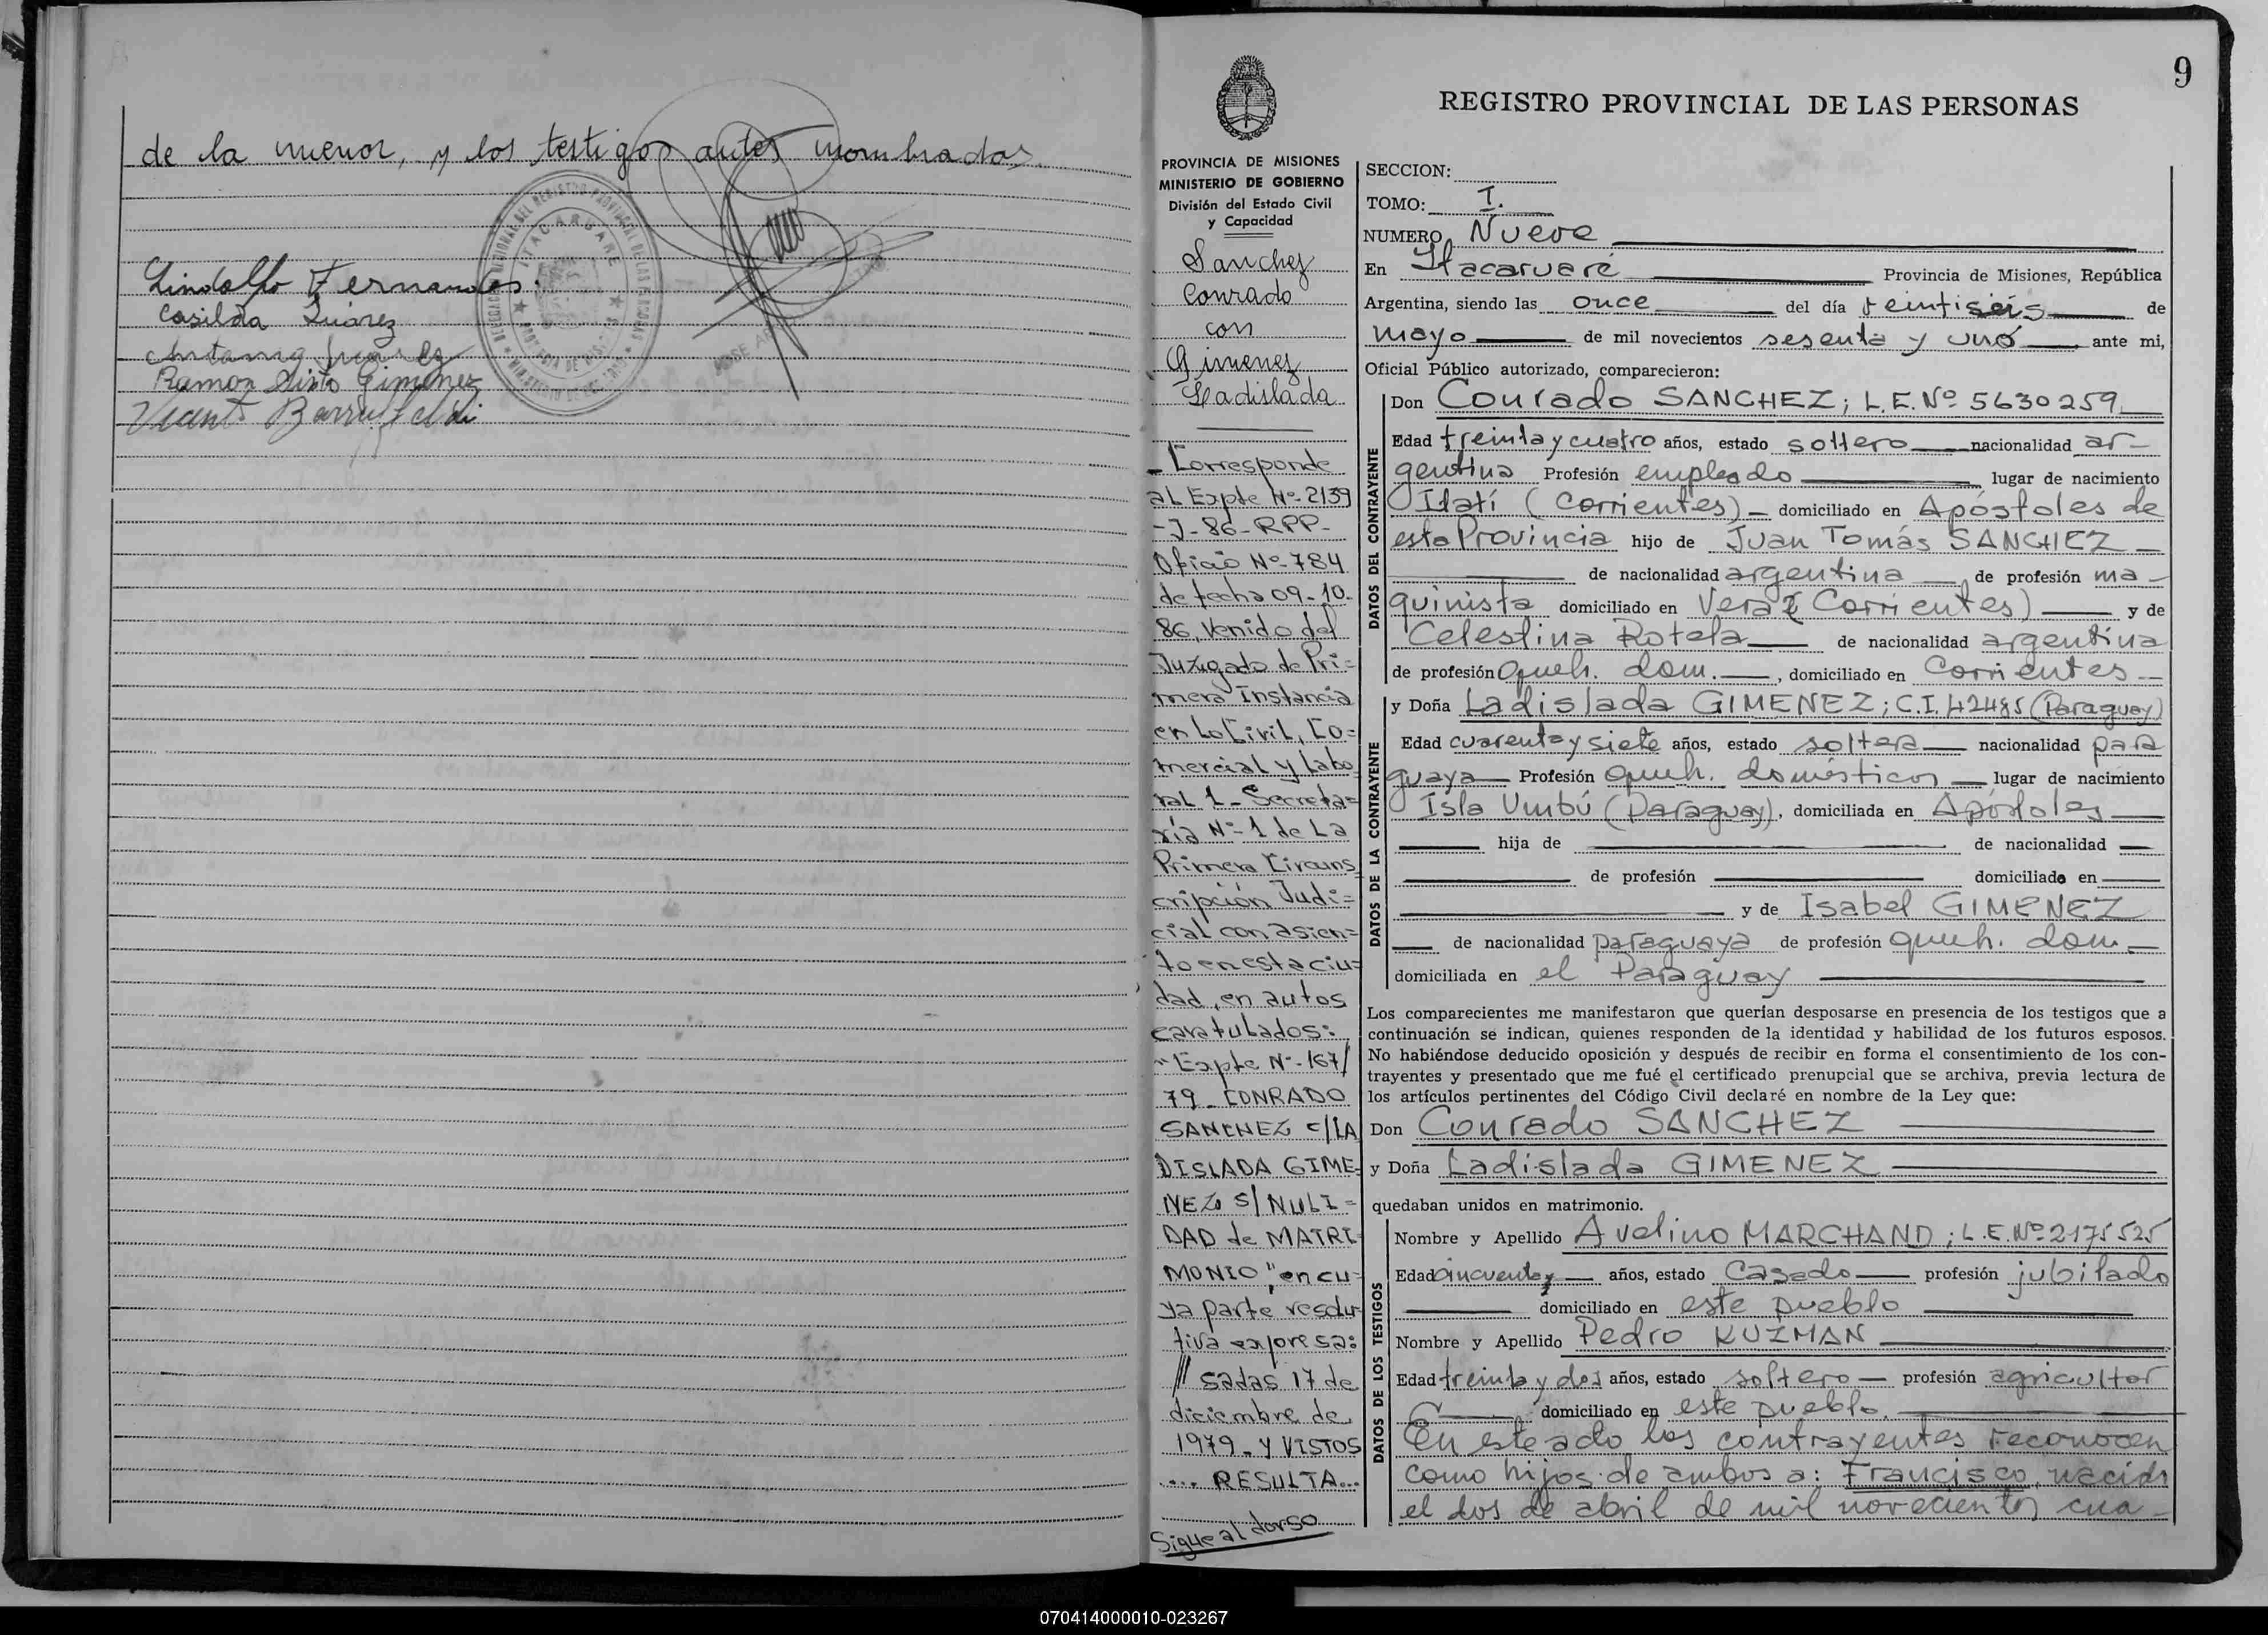 de la menor, y los testigos antes nombrados.
Lindolfo Fernandes.
Casilda Suárez
Juarez
Ramon Sixto Gimenez
Vicente
ITACARUARE
9
REGISTRO PROVINCIAL DE LAS PERSONAS
PROVINCIA DE MISIONES
MINISTERIO DE GOBIERNO
División del Estado Civil
y Capacidad
Sanchez
Conrado
con
Gimenez
Ladislada
- Corresponde
al Expte Nº-2139
-J-86-RPP-
Oficio Nº-784
de fecha 09-10-
86, Venido del
Juzgado de Pri=
mera Instancia
en Lo Civil, Co=
mercial y Labo
ral 1 - Secreta=
ría Nº-1 de La
Primera Circuns
cripción Judi=
cial con asien=
to en esta ciu=
dad, en autos
caratulados:
"Expte Nº-167/
79-CONRADO
SANCHEZ c/LA
DISLADA GIME=
NEZ S/NULI=
DAD de MATRI
MONIO", en cu=
ya parte resolu
tiva expresa:
// sadas 17 de
diciembre de
1979- Y VISTOS
.... RESULTA...
Sigue al dorso
SECCION:
TOMO: I.
NUMERO Nueve
En Itacaruaré Provincia de Misiones, República
Argentina, siendo las once del día veintiseis de
mayo de mil novecientos sesenta y uno ante mi,
Oficial Público autorizado, comparecieron:
DATOS DEL CONTRAYENTE
Don Conrado SANCHEZ; L.E.Nº 5630259
Edad treinta y cuatro años, estado soltero nacionalidad ar-
gentina Profesión empleado lugar de nacimiento
Itatí (Corrientes) - domiciliado en Apóstoles de
esta Provincia hijo de Juan Tomás SANCHEZ -
de nacionalidad argentina, de profesión ma-
quinista domiciliado en Vera (Corrientes) y de
Celestina Rotela de nacionalidad argentina
de profesión queh. dom. , domiciliado en Corrientes -
DATOS DE LA CONTRAYENTE
y Doña Ladislada GIMENEZ; C.I. 42485 (Paraguay)
Edad cuarenta y siete años, estado soltera nacionalidad para
guaya Profesión queh. domésticos lugar de nacimiento
Isla Umbú (Paraguay), domiciliada en Apóstoles
hija de de nacionalidad
de profesión domiciliado en
y de Isabel GIMENEZ
de nacionalidad paraguaya de profesión queh. dom.
domiciliada en el Paraguay
Los comparecientes me manifestaron que querían desposarse en presencia de los testigos que a
continuación se indican, quienes responden de la identidad y habilidad de los futuros esposos.
No habiéndose deducido oposición y después de recibir en forma el consentimiento de los con-
trayentes y presentado que me fué el certificado prenupcial que se archiva, previa lectura de
los artículos pertinentes del Código Civil declaré en nombre de la Ley que:
Don Conrado SANCHEZ
y Doña Ladislada GIMENEZ
quedaban unidos en matrimonio.
DATOS DE LOS TESTIGOS
Nombre y Apellido Avelino MARCHAND; L.E.Nº 2175525
Edad cincuenta y años, estado Casado profesión jubilado
domiciliado en este pueblo
Nombre y Apellido Pedro KUZMAN
Edad treinta y dos años, estado soltero - profesión agricultor
domiciliado en este pueblo.
En este acto los contrayentes reconocen
como hijos de ambos a: Francisco, nacido
el dos de abril de mil novecientos cua-
070414000010-023267